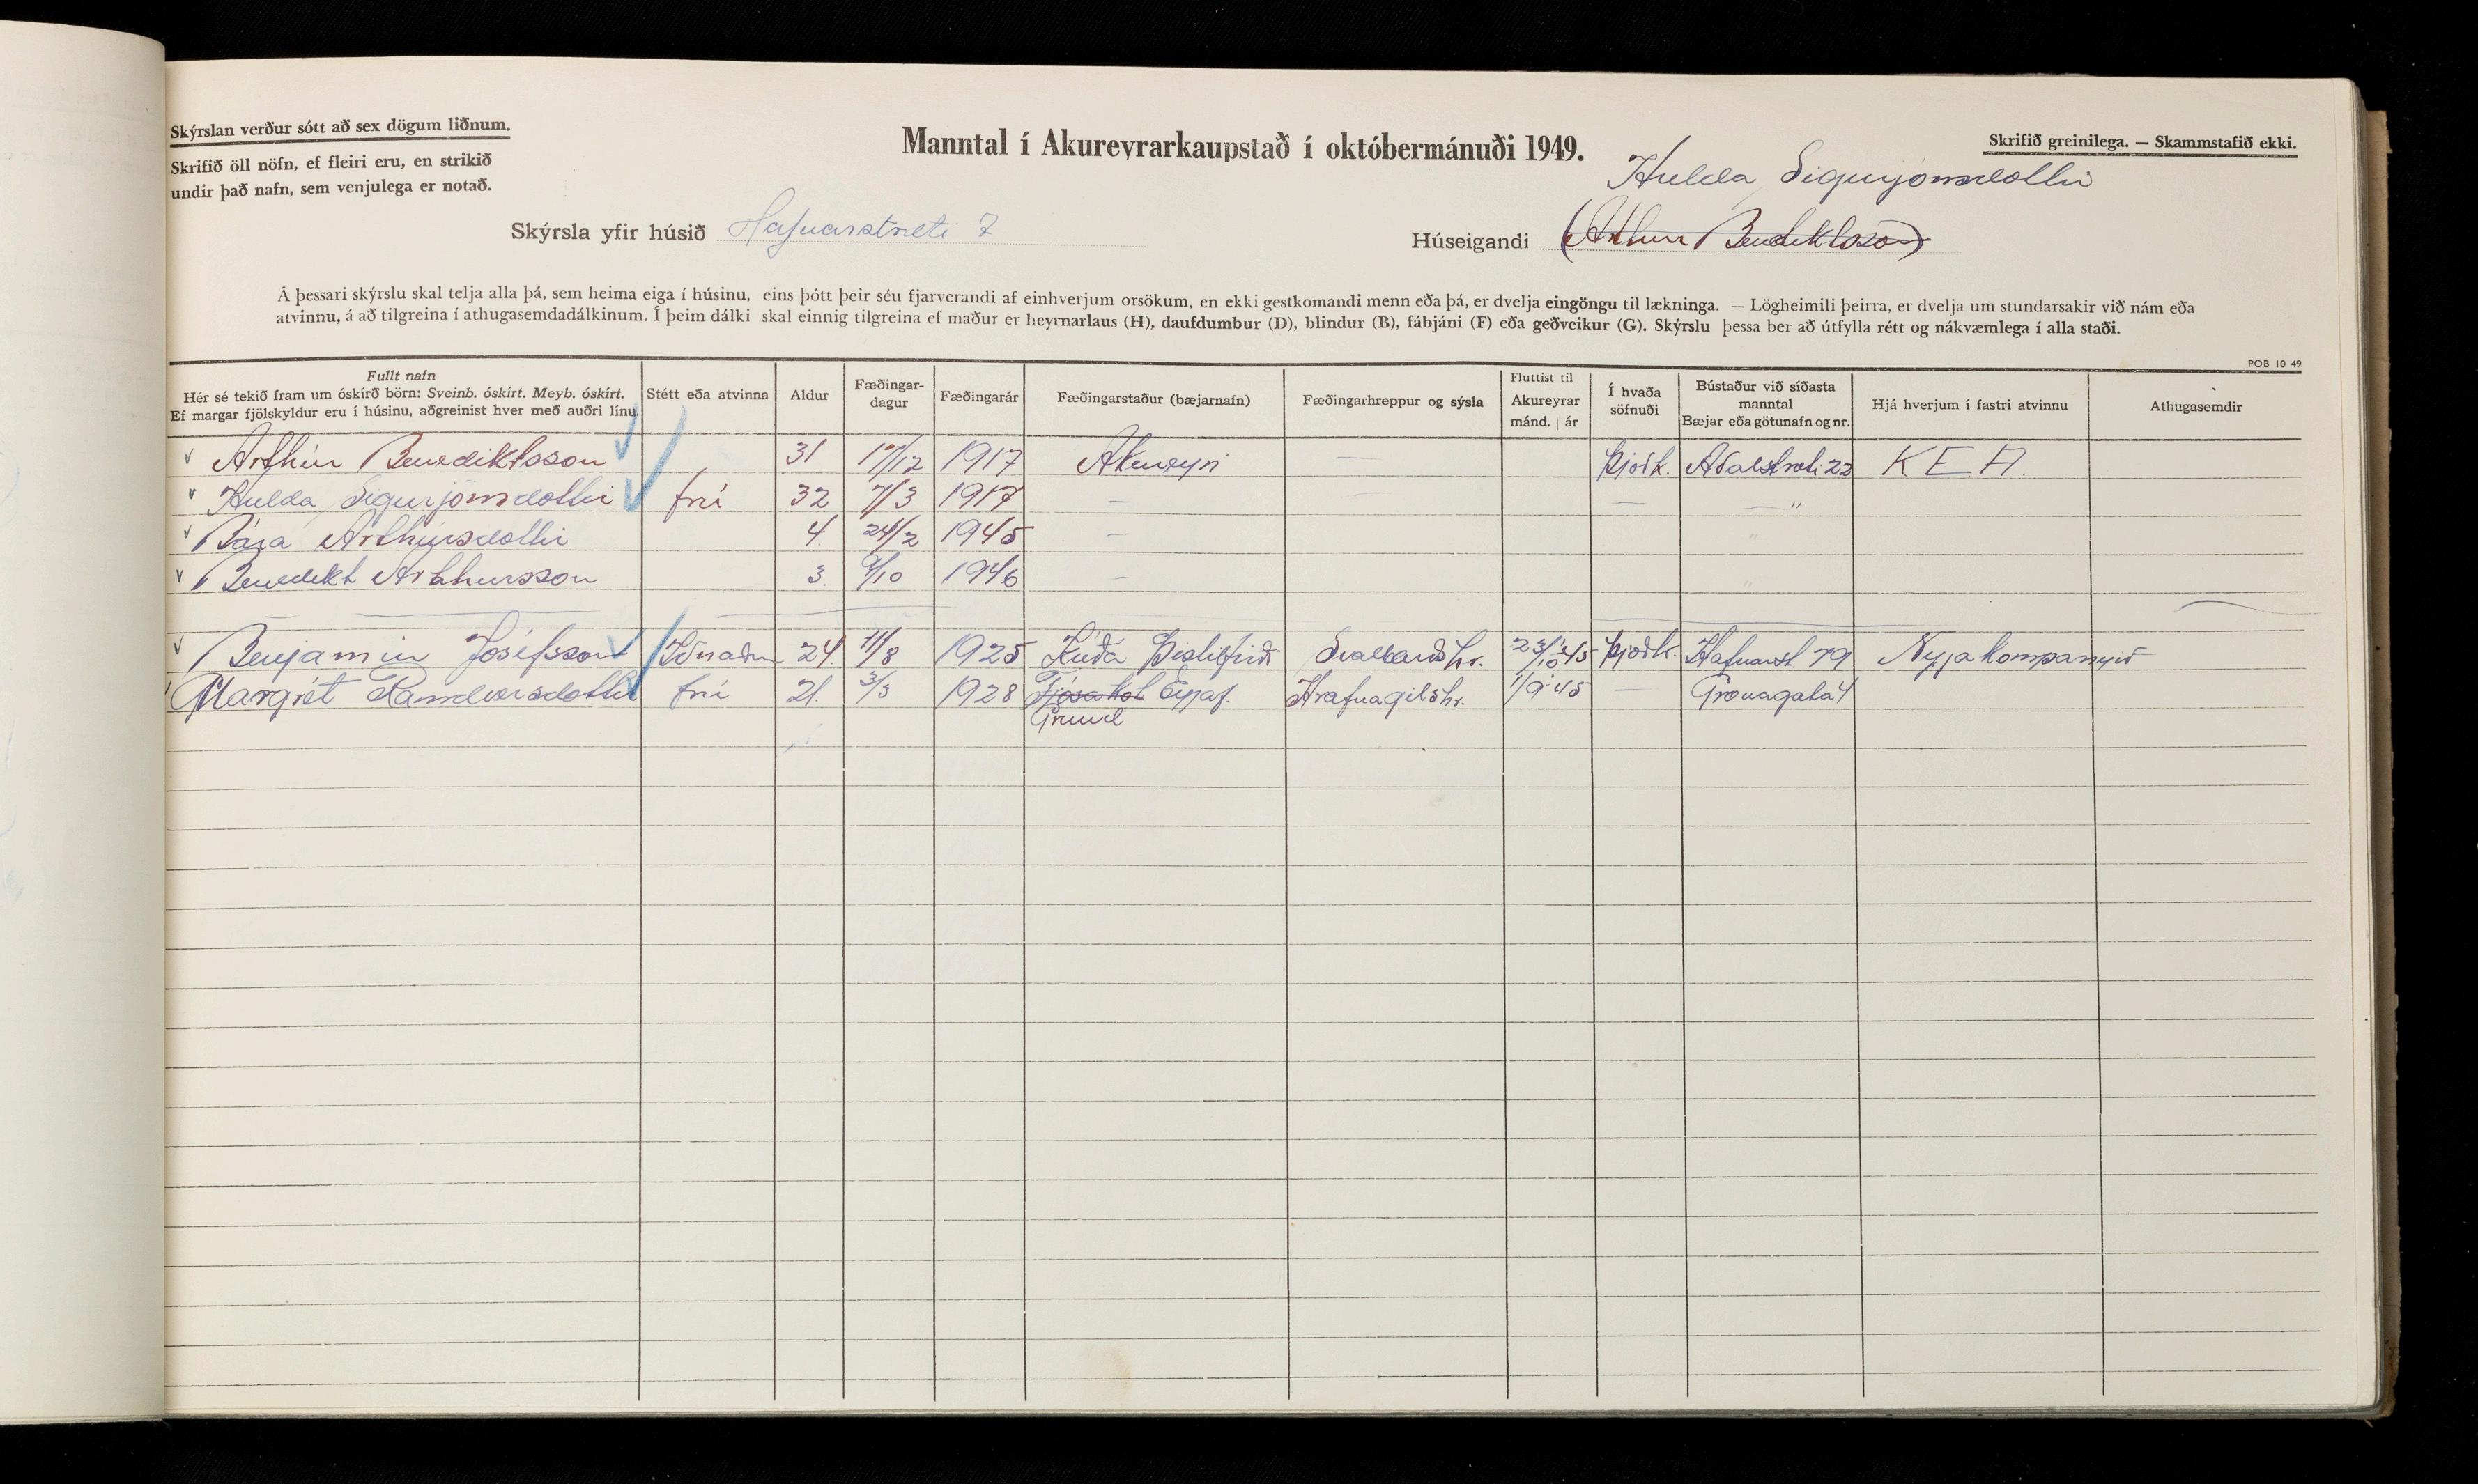 Skýrslan verður sótt að sex dögum liðnum.
Skrifið öll nöfn, ef fleiri eru, en strikið
undir það nafn, sem venjulega er notað.
Manntal í Akureyrarkaupstað í októbermánuði 1949.
Skrifið greinilega. — Skammstafið ekki.
Hulda Sigurjónsdóttir
Skýrsla yfir húsið Hafnarstræti 7
Húseigandi (Arthur Benediktsson)
Á þessari skýrslu skal telja alla þá, sem heima eiga í húsinu, eins þótt þeir séu fjarverandi af einhverjum orsökum, en ekki gestkomandi menn eða þá, er dvelja eingöngu til lækninga. — Lögheimili þeirra, er dvelja um stundarsakir við nám eða
atvinnu, á að tilgreina í athugasemdadálkinum. Í þeim dálki skal einnig tilgreina ef maður er heyrnarlaus (H), daufdumbur (D), blindur (B), fábjáni (F) eða geðveikur (G). Skýrslu þessa ber að útfylla rétt og nákvæmlega í alla staði.
POB 10 49
Fullt nafn
Hér sé tekið fram um óskírð börn: Sveinb. óskírt. Meyb. óskírt.
Ef margar fjölskyldur eru í húsinu, aðgreinist hver með auðri línu.
Stétt eða atvinna
Aldur
Fæðingar-
dagur
Fæðingarár
Fæðingarstaður (bæjarnafn)
Fæðingarhreppur og sýsla
Fluttist til
Akureyrar
mánd. | ár
Í hvaða
söfnuði
Bústaður við síðasta
manntal
Bæjar eða götunafn og nr.
Hjá hverjum í fastri atvinnu
Athugasemdir
Arthúr Benediktsson 31 17/12 1917 Akureyri — Þjoðk. Aðalstræti 22 K E A.
Hulda Sigurjónsdóttir frú 32 7/3 1917 — — — — "
Bára Arthúrsdóttir 4. 24/2 1945 — "
Benedikt Arthursson 3. 9/10 1946 — "
Benjamín Jósefsson Iðnaðm 24. 11/8 1925 Þistilfirði Svalbarðshr. 23/10 '45 Þjoðk. Hafnarst 79 Nyja kompanyið
Margrét Randversdóttir frú 21. 3/3 1928 Fjósakot Eyjaf. Hrafnagilshr. 1/9 '45 — Grænagata 4
Grund